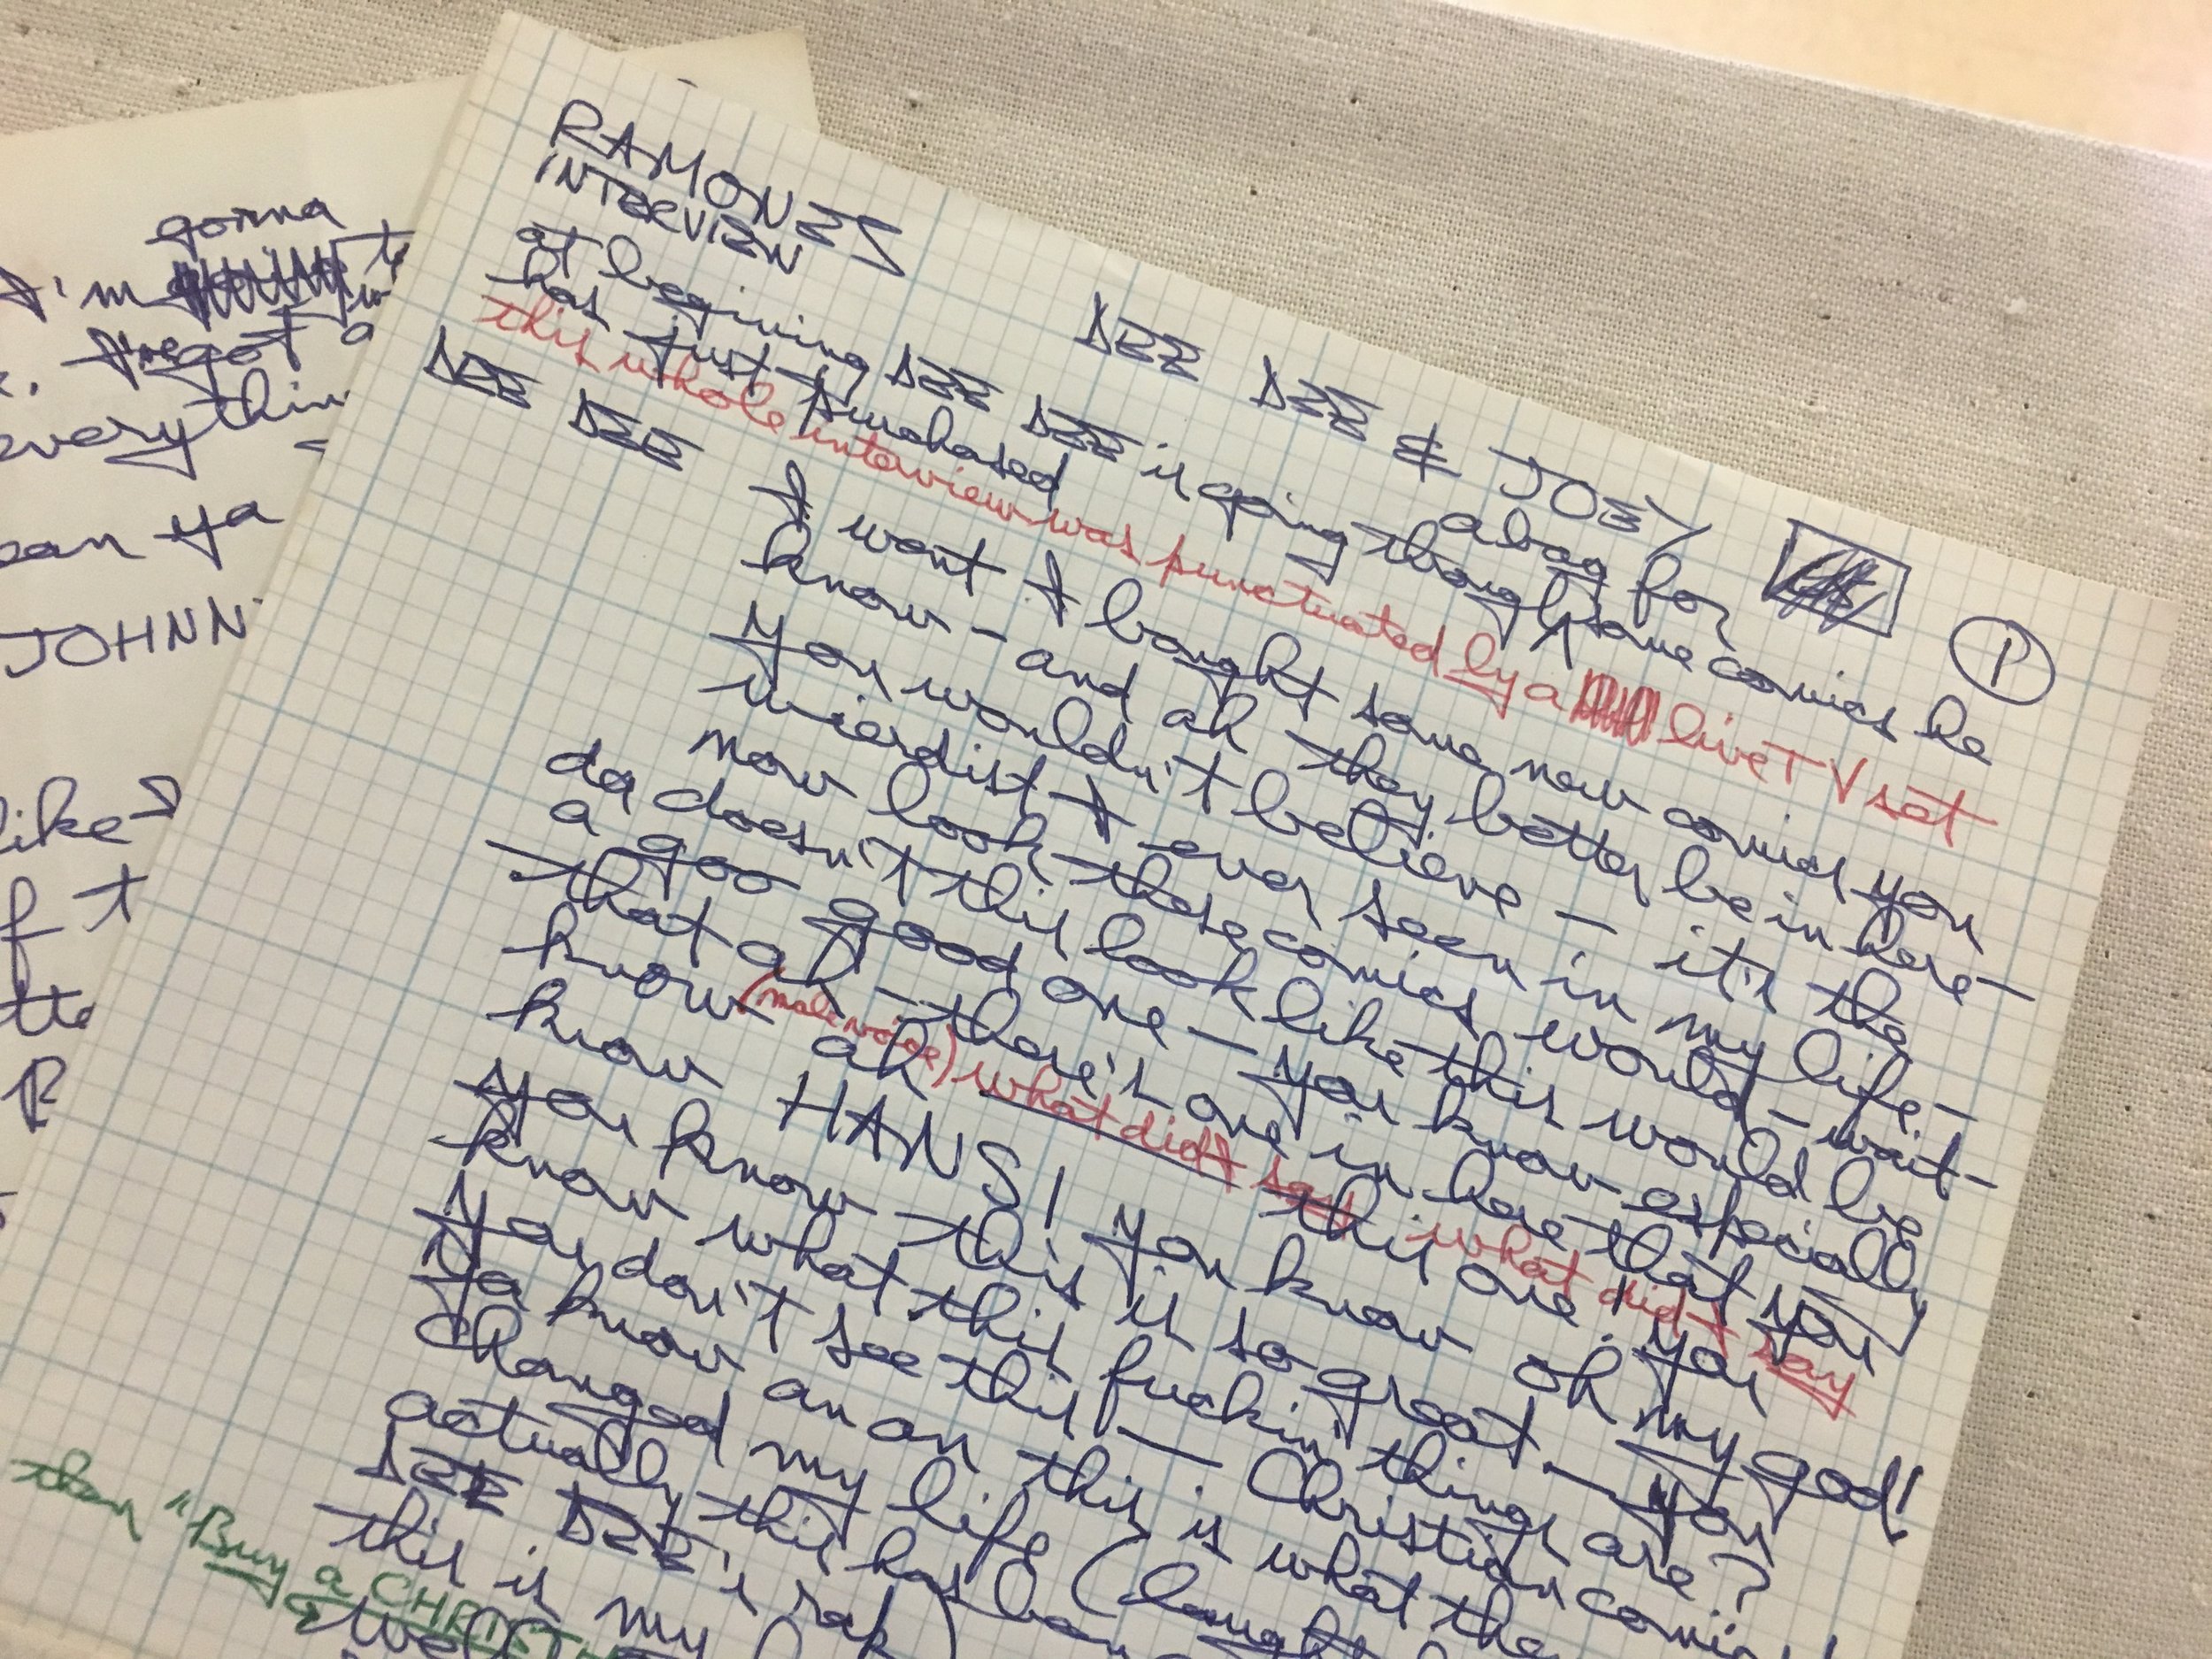 gonna
I'm
got a
everythin
ean ya
JOHNN
like
f t
tte
R
RAMONES
INTERVIEW
DEE DEE & JOEY
1
at begining DEE DEE is going though a bag for some comics he
has just purchased
this whole interview was punctuated by a live TV set
DEE DEE
I want I bought some new comics you
know - and ah they better be in here -
you wouldn't believe - it's the
wierdist I ever seen in my life -
now look these comics would - wait -
da doesn't this look like this would be
a goo good one - you know especially
that ah - there's one in here that you
know ah this one! you
(male voice) what did I say what did I say
know HANS! you know oh my god!
you know this is so great - you
know what this fuckin' things are?
you don't see this - Christian comics!
ya know an on this is what the
changed my life (laught
actually this has
DEE DEE's rap)
this is my
then "Buy a CHRIST
well